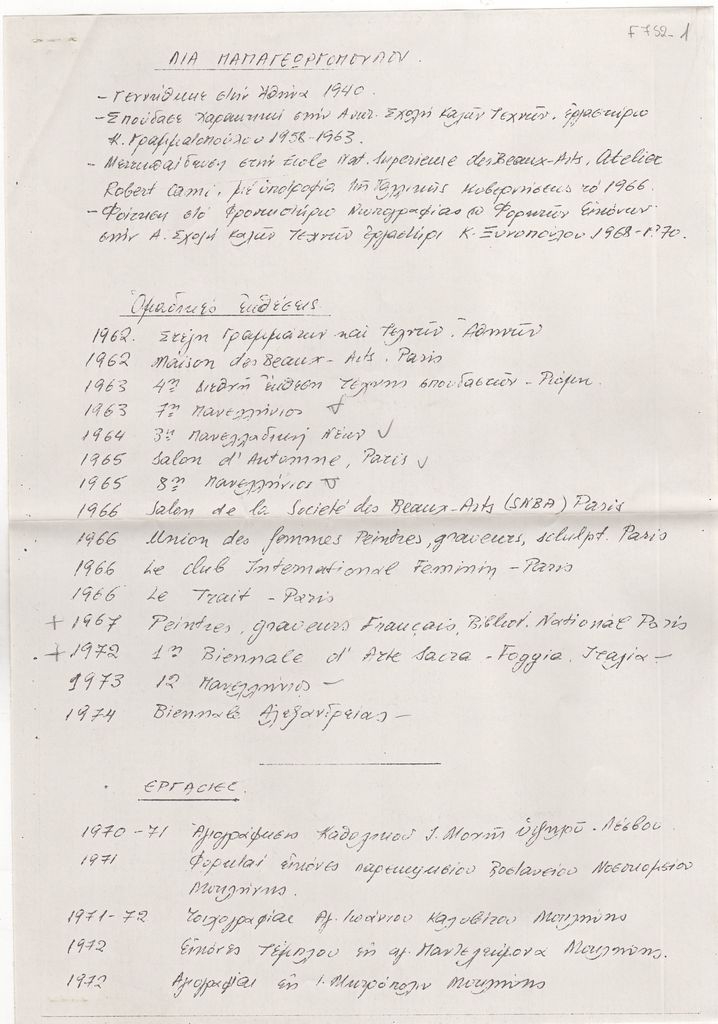 F752-1
ΛΙΑ ΠΑΠΑΓΕΩΡΓΟΠΟΥΛΟΥ.
- Γεννήθηκε στήν Ἀθήνα 1940.
- Σπούδασε Χαρακτική στήν Ανωτ. Σχολή Καλῶν Τεχνῶν. Ἐργαστήριο
Κ. Γραμματοπούλου 1958-1963.
- Μετεκπαίδευση στήν École Nat. Superieure des Beaux-Arts, Atelier
Robert Cami, μέ ὑποτροφία τῆς Γαλλικῆς Κυβερνήσεως τό 1966.
- Φοίτηση στό Φροντιστήριο Φορητῶν Εἰκόνων
στήν Α. Σχολή Καλῶν Τεχνῶν Ἐργαστήρι Κ. Ξυνοπούλου 1968-1970.
Ὁμαδικές Ἐκθέσεις
1962. Στέγη Γραμμάτων καί Τεχνῶν. Ἀθηνῶν
1962 Maison des Beaux-Arts. Paris
1963 4η Διεθνή Ἔκθεση Τέχνης σπουδαστῶν - Ρώμη.
1963 7η Πανελλήνιος
1964 3η Πανελλαδική Νέων
1965 Salon d'Automne, Paris
1965 8η Πανελλήνιος
1966 Salon de la Societé des Beaux-Arts (SNBA) Paris
1966 Union des femmes Peintres, graveurs, sculpt. Paris
1966 Le club International Feminin - Paris
1966 Le Trait - Paris
+ 1967 Peintres, graveurs Français, Bibliot. National Paris
+ 1972 1η Biennale d'Arte Sacra - Foggia. Ἰταλία -
1973 12 Πανελλήνιος -
1974 Biennale Ἀλεξανδρείας -
ΕΡΓΑΣΙΕΣ.
1970-71 Ἁγιογράφησις Καθολικοῦ Ἱ. Μονῆς Ὑψηλοῦ - Λέσβου.
1971 Φορηταί εἰκόνες παρεκκλησίου Βοστανείου Νοσοκομείου
Μυτιλήνης.
1971-72 Τοιχογραφίαι Ἁγ. Ἰωάννου Καλυβίτου Μυτιλήνης
1972 Εἰκόνες Τέμπλου εἰς ἁγ. Παντελεήμονα Μυτιλήνης.
1972 Ἁγιογραφίαι εἰς Ἱ. Μητρόπολιν Μυτιλήνης